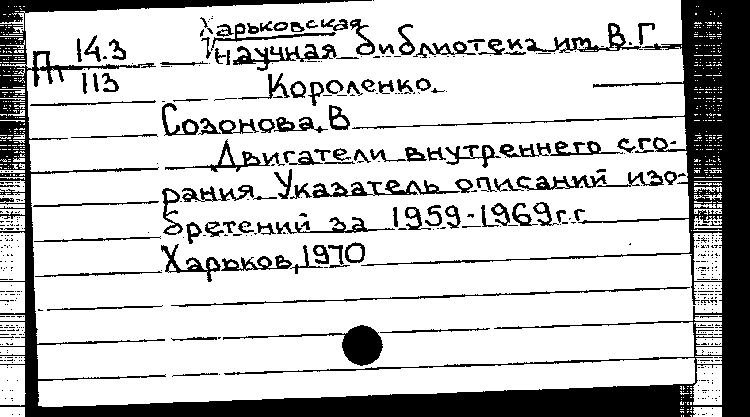 Харьковская
Пт 14.3 научная библиотека им. В.Г.
113 Короленко.
Созонова, В
Двигатели внутреннего сго-
рания. Указатель описаний изо-
бретений за 1959-1969г.г
Харьков, 1970